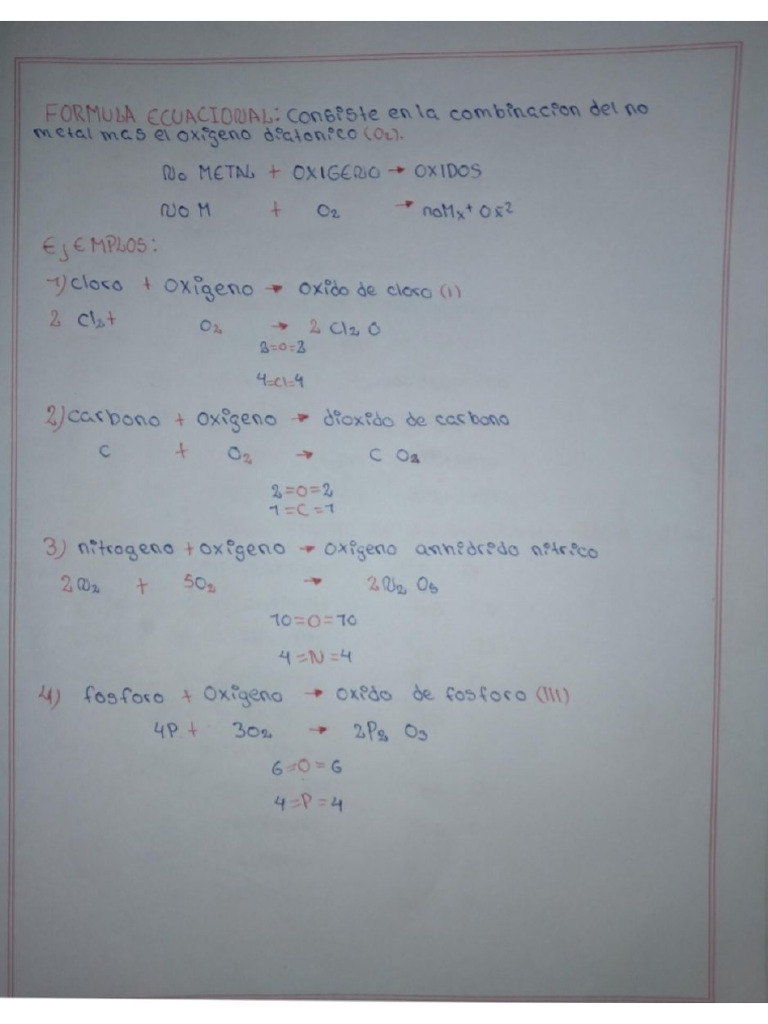 FORMULA ECUACIONAL: Consiste en la combinacion del no
metal mas el oxigeno diatonico (O₂).
No METAL + OXIGENO → OXIDOS
NO M + O₂ → noMx⁺ Ox⁻²
EJEMPLOS:
1) cloro + oxigeno → oxido de cloro (I)
2 Cl₂ + O₂ → 2 Cl₂ O
2=O=2
4=Cl=4
2) carbono + oxigeno → dioxido de carbono
C + O₂ → C O₂
2=O=2
1=C=1
3) nitrogeno + oxigeno → oxigeno anhidrido nitrico
2N₂ + 5O₂ → 2N₂ O₅
10=O=10
4=N=4
4) fosforo + oxigeno → oxido de fosforo (III)
4P + 3O₂ → 2P₂ O₃
6=O=6
4=P=4